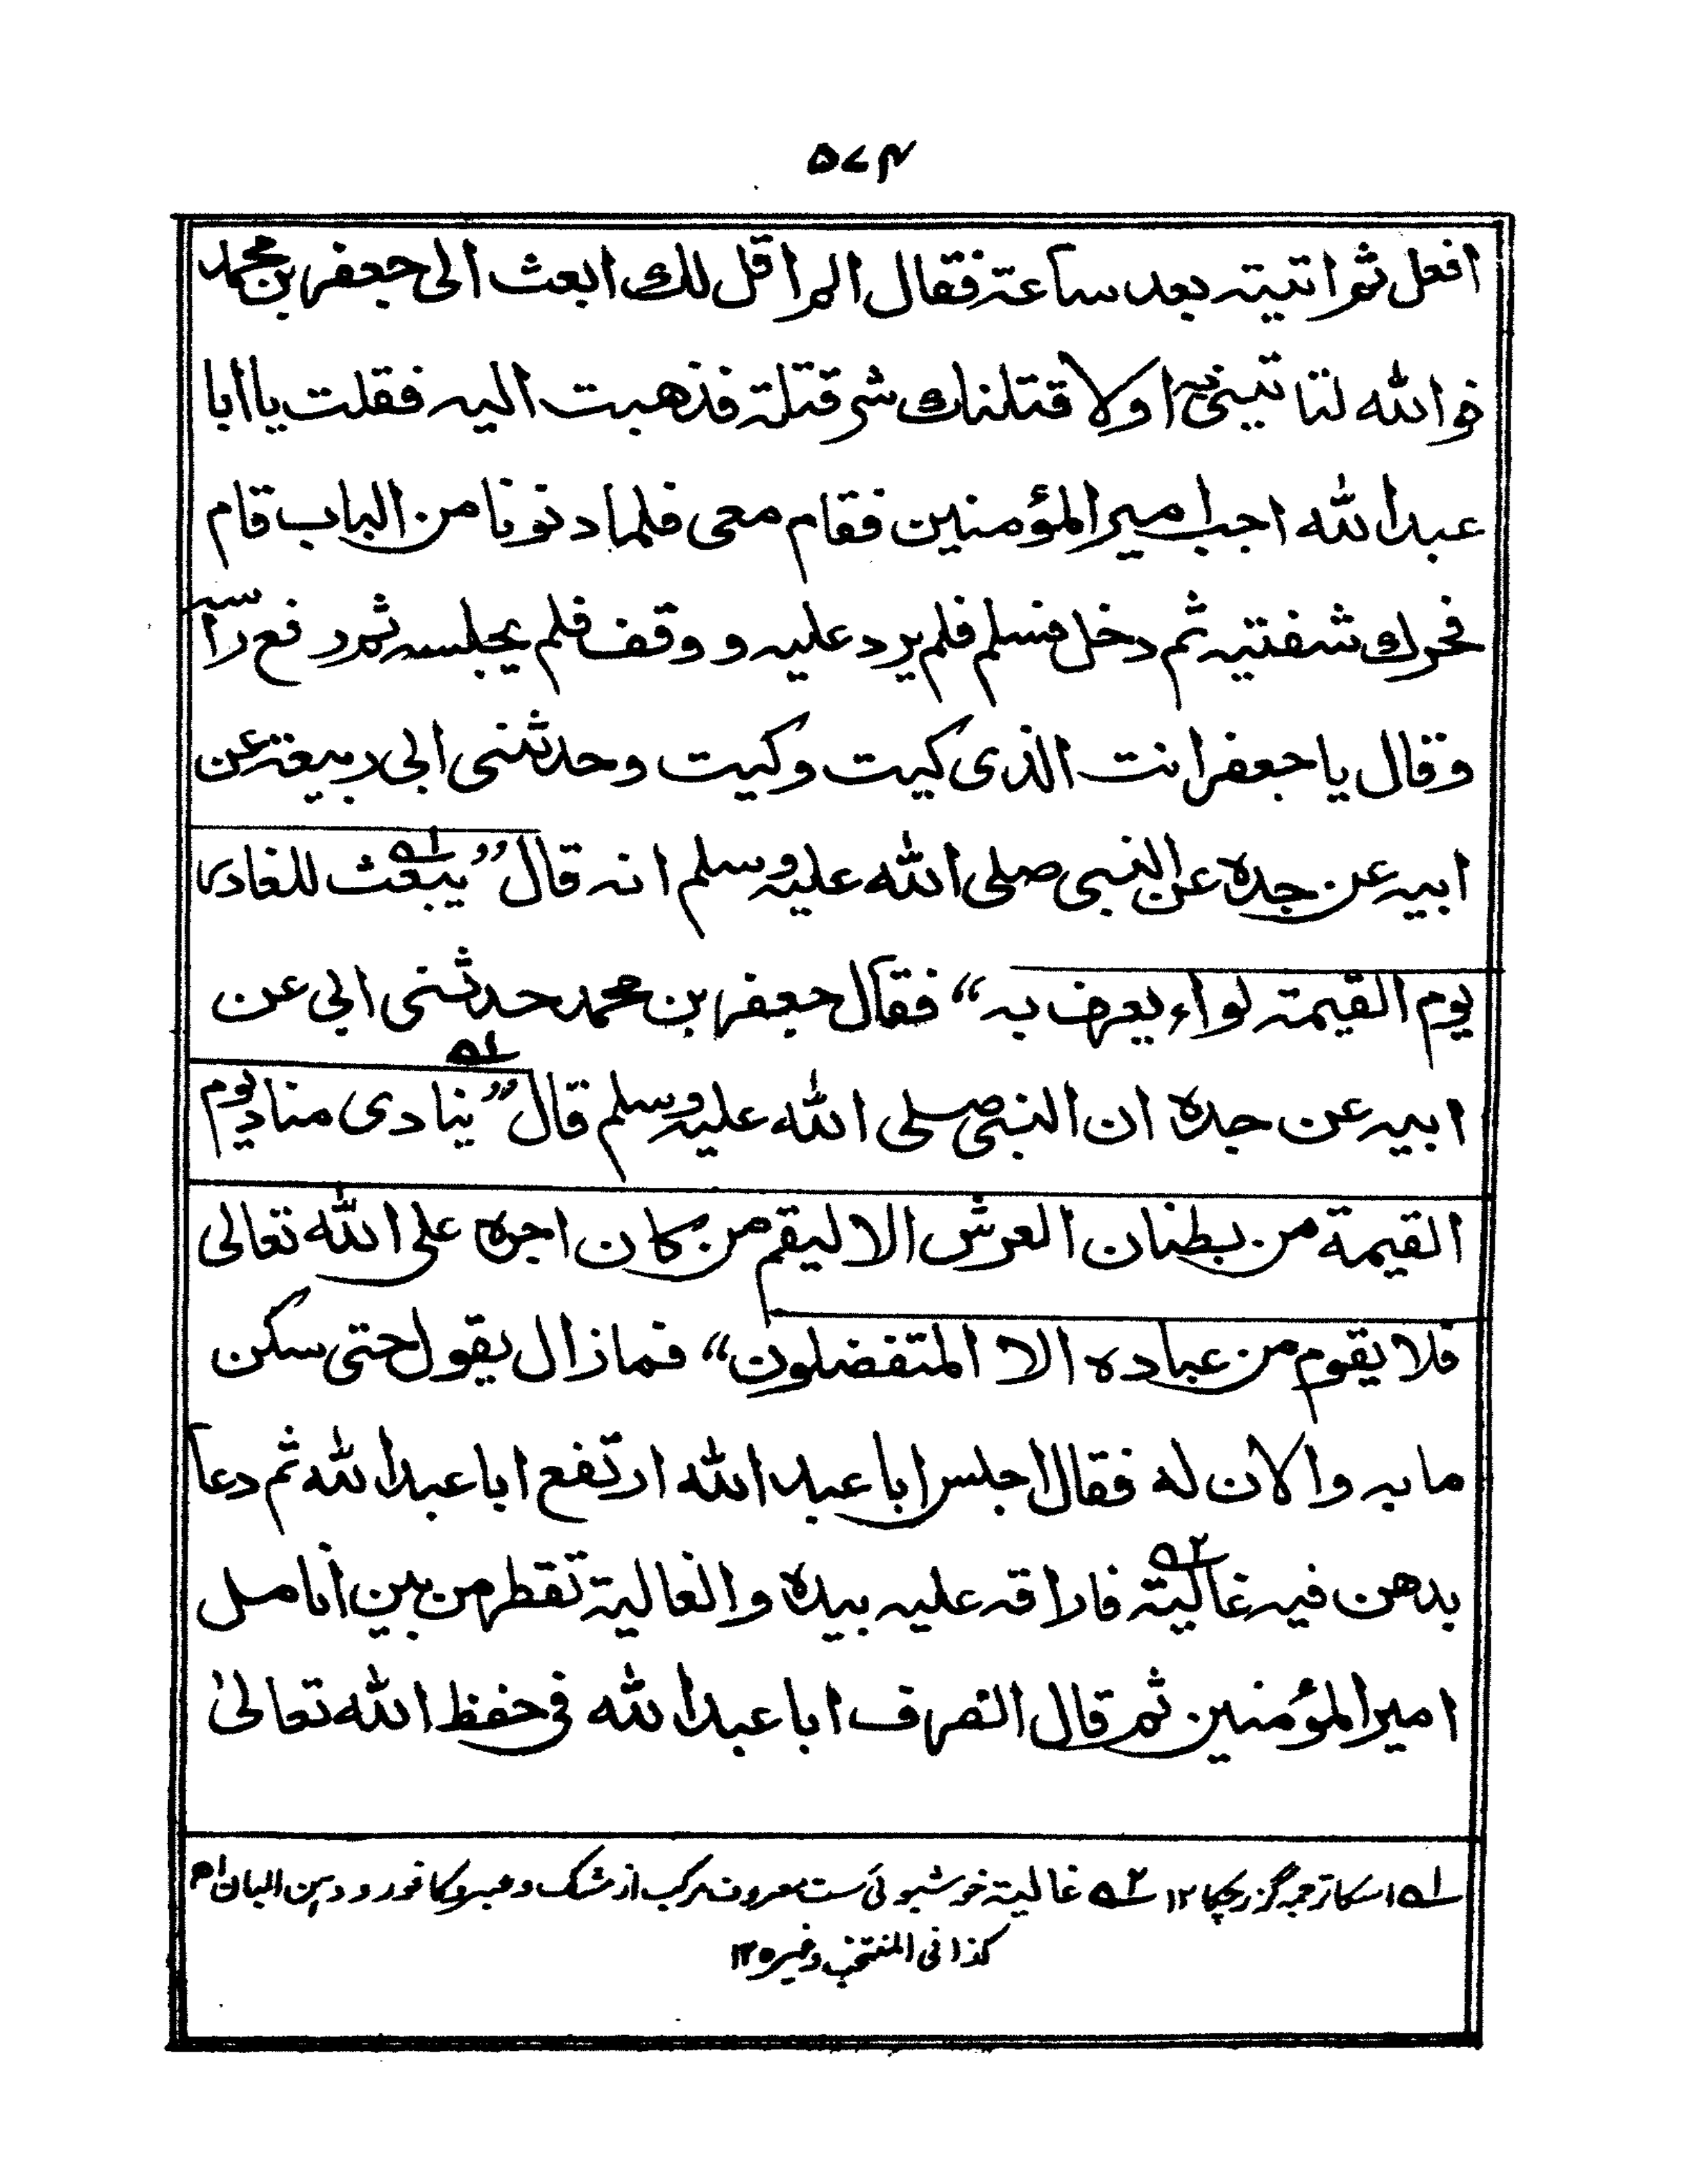 ۵۷۴
افعل ثم اتيته بعد ساعة فقال الم اقل لك ابعث الى جعفر بن محمد
فوالله لتاتينى به اولا قتلنك شر قتلة فذهبت اليه فقلت يا ابا
عبدالله اجب امير المؤمنين فقام معى فلما دنونا من الباب قام
فحرك شفتيه ثم دخل فسلم فلم يرد عليه و وقف فلم يجلسه ثم رفع راسه
وقال يا جعفر انت الذى كيت وكيت وحدثنى ابى ربيعة عن
ابيه عن جده عن النبى صلى الله عليه وسلم انه قال ”يبعث ؎۱ للغادر
يوم القيمة لواء يعرف به“ فقال جعفر بن محمد حدثنى ابى عن
ابيه عن جده ان النبى صلى الله عليه وسلم قال ؎۱ ”ينادى مناد يوم
القيمة من بطنان العرش الا ليقم من كان اجره على الله تعالى
فلا يقوم من عباده الا المتفضلون“ فمازال يقول حتى سكن
مابه والان له فقال اجلس ابا عبد الله ارتفع ابا عبدالله ثم دعا
بدهن فيه غالية ؎۲ فاراقه عليه بيده والغالية تقطر من بين انامل
امير المؤمنين ثم قال انصرف ابا عبدالله فى حفظ الله تعالىٰ
؎۱ اسکا ترجمہ گزر چکا ۱۲ ؎۲ غالیۃ خوشبوئی ست معروف مرکب از مشک و عنبر و کافور و دہن البان ۱۲م
کذا فی المنتخب وغیرہ ۱۲